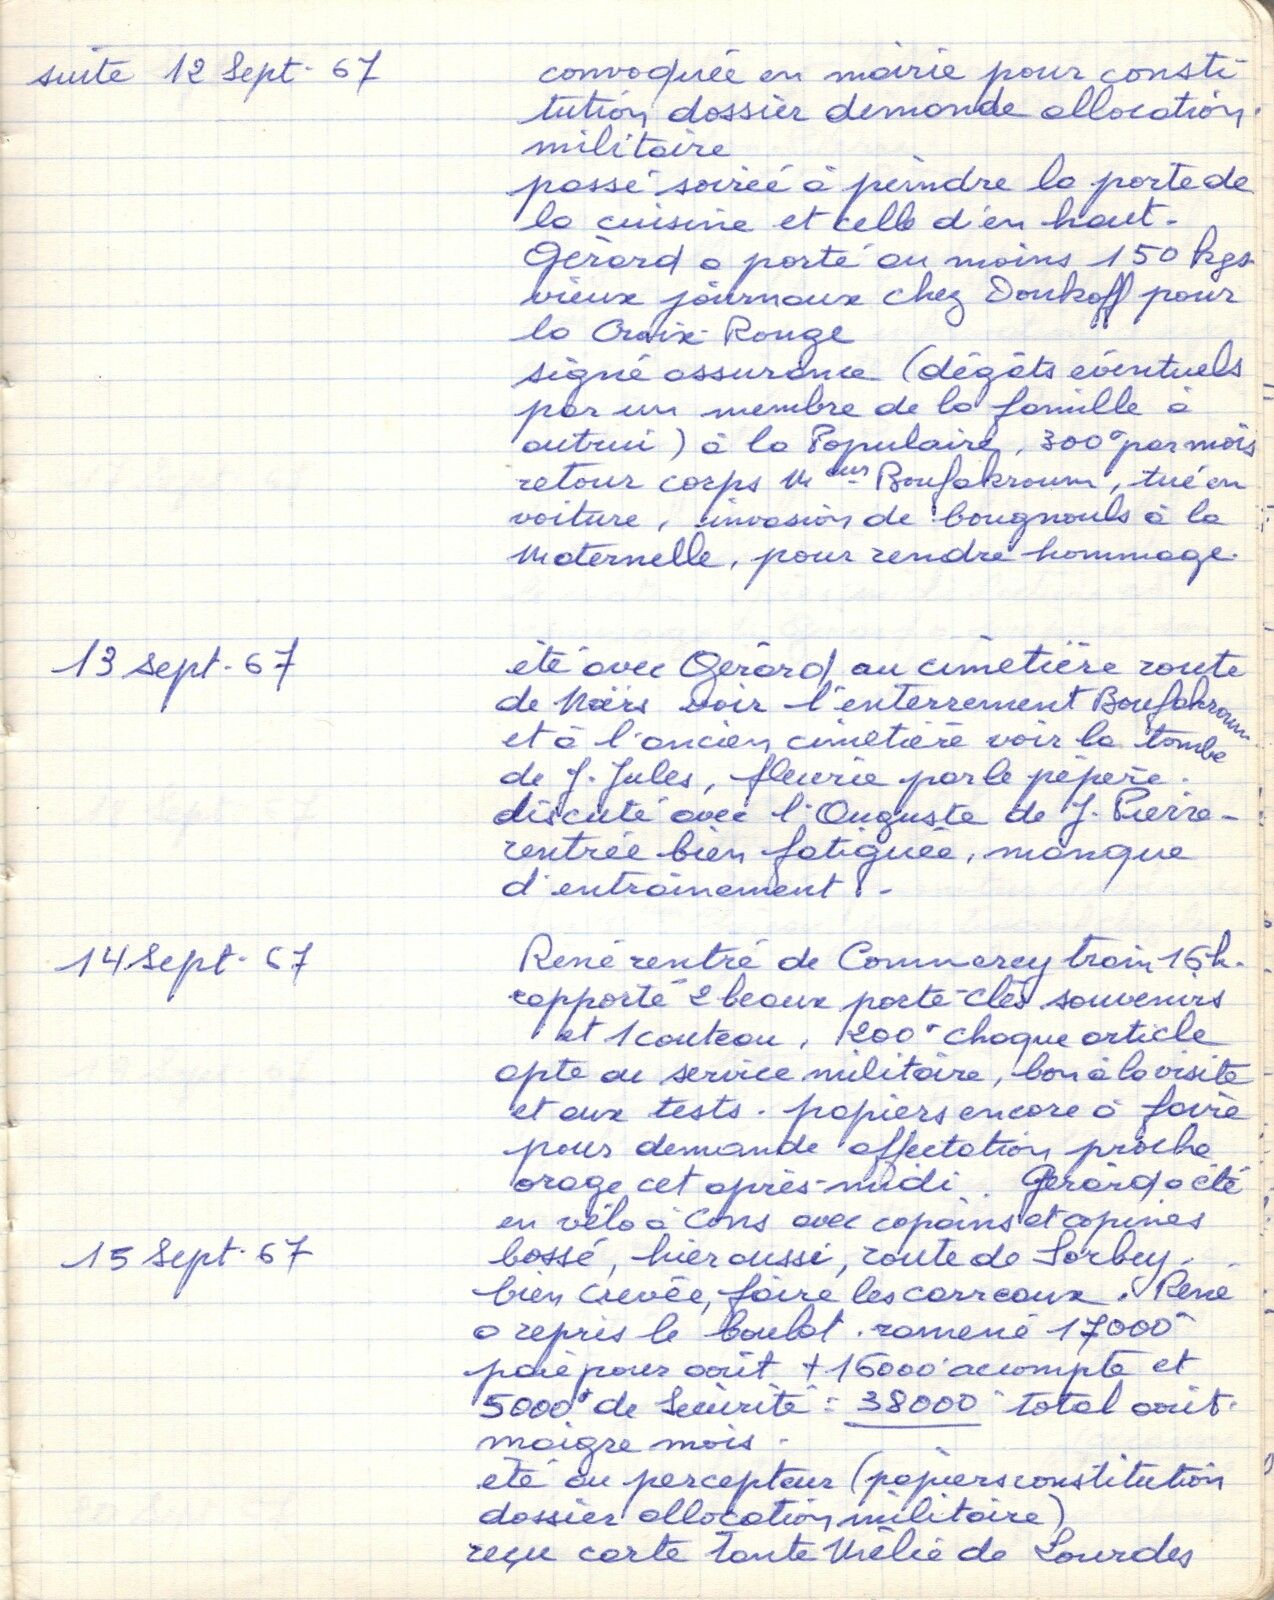 suite 12 Sept. 67
convoquée en mairie pour consti-
tution dossier demande allocation
militaire
passé soirée à peindre la porte de
la cuisine et celle d'en haut.
Gérard a porté au moins 150 kgs
vieux journaux chez Donkoff pour
la Croix-Rouge
signé assurance (dégâts éventuels
par un membre de la famille à
autrui) à la Populaire, 300° par mois
retour corps Boufakroum, tué en
voiture, invasion de bougnouls à la
Maternelle, pour rendre hommage.
13 sept. 67
été avec Gérard au cimetière route
de voir l'enterrement Boufakroum
et à l'ancien cimetière voir la tombe
de J. Jules, fleurie par le pépère.
discuté avec l'Ouguste de J. Pierre -
rentrée bien fatiguée, manque
d'entraînement ! -
14 Sept. 67
René rentré de Commercy train 16h.
rapporté 2 beaux porte-clés souvenirs
et 1 couteau, 200° chaque article
apte au service militaire, bon à la visite
et aux tests. papiers encore à faire
pour demande affectation proche
orage cet après-midi. Gérard a été
en vélo à Cons avec copains et copines
15 Sept. 67
bossé, hier aussi, route de Sorbey.
bien crevée, faire les carreaux. René
a repris le boulot. ramené 17000°
paie pour août + 16000° accompte et
5000° de Sécurité = 38000° total août.
maigre mois.
été au percepteur (papiers constitution
dossier allocation militaire)
reçu carte Tante Mélie de Lourdes